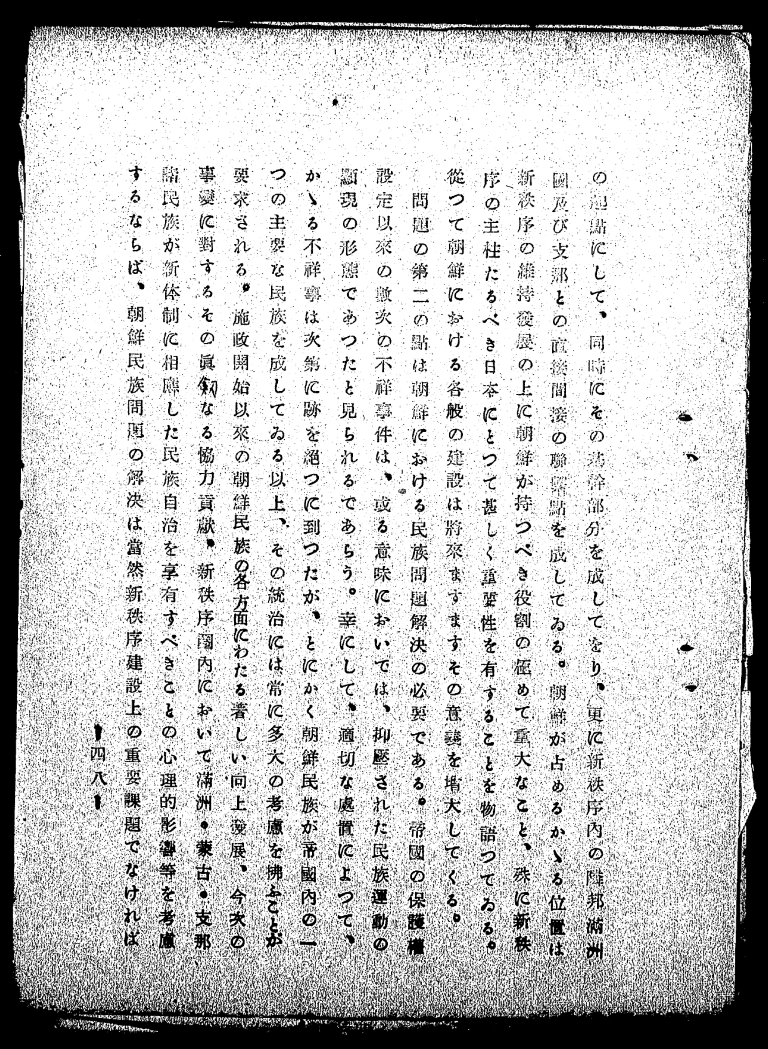 の起點にして、同時にその基幹部分を成してをり、更に新秩序內の隣邦滿洲
國及び支那との直接間接の聯絡點を成してゐる。朝鮮が占めるかゝる位置は
新秩序の維持發展の上に朝鮮が持つべき役割の極めて重大なこと、殊に新秩
序の主柱たるべき日本にとつて甚しく重要性を有することを物語つてゐる。
從つて朝鮮における各般の建設は將來ますますその意義を增大してくる。
問題の第二の點は朝鮮における民族問題解決の必要である。帝國の保護權
設定以來の數次の不祥事件は、或る意味においては、抑壓された民族運動の
顯現の形態であつたと見られるであらう。幸にして、適切な處置によつて、
かゝる不祥事は次第に跡を絕つに到つたが、とにかく朝鮮民族が帝國內の一
つの主要な民族を成してゐる以上、その統治には常に多大の考慮を拂ふことが
要求される。施政開始以來の朝鮮民族の各方面にわたる著しい向上發展、今次の
事變に對するその眞劍なる協力貢獻、新秩序圈內において滿洲・蒙古・支那
諸民族が新体制に相應した民族自治を享有すべきことの心理的影響等を考慮
するならば、朝鮮民族問題の解決は當然新秩序建設上の重要課題でなければ
四八